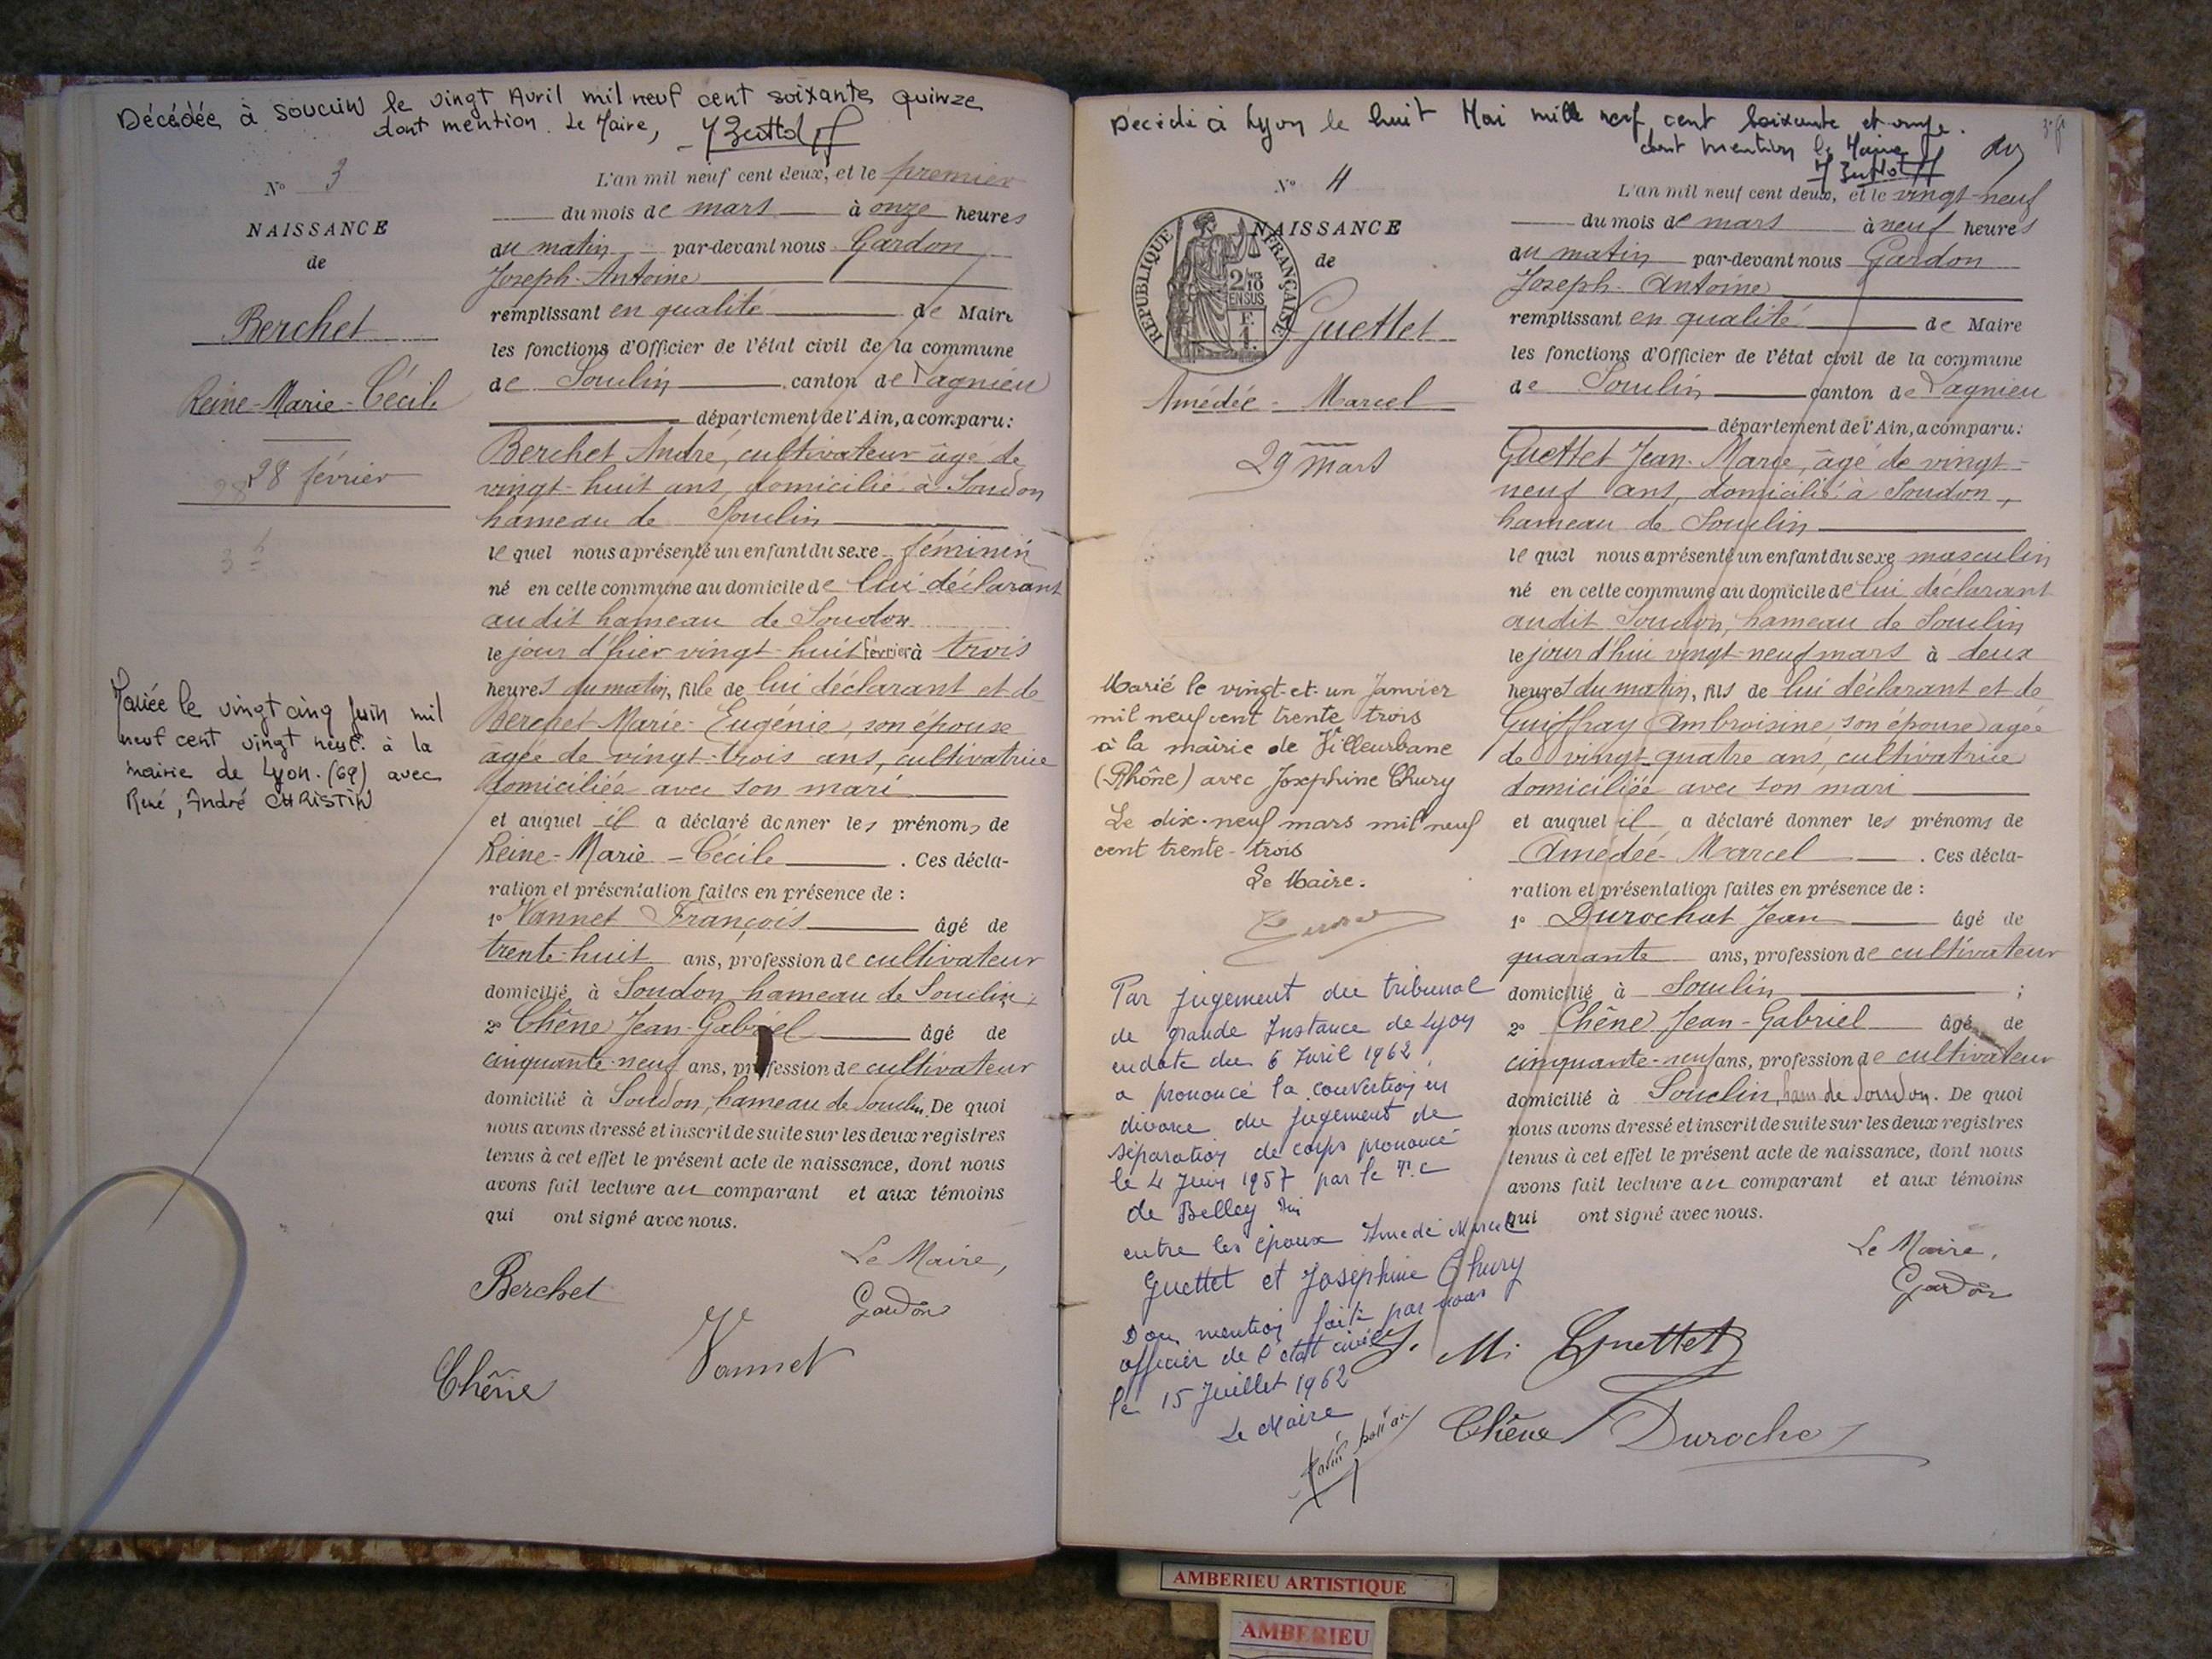 Décédée à Souclin le vingt Avril mil neuf cent soixante quinze
dont mention. Le Maire,
N° 3
NAISSANCE
de
Berchet
Reine-Marie-Cécile
28 février
Mariée le vingt cinq Juin mil
neuf cent vingt neuf. à la
mairie de Lyon. (69) avec
René, André CHRISTIN
L'an mil neuf cent deux, et le premier
du mois de mars à onze heures
du matin par-devant nous Gardon
Joseph-Antoine
remplissant en qualité de Maire
les fonctions d'Officier de l'état civil de la commune
de Souclin canton de Lagnieu
département de l'Ain, a comparu:
Berchet André, cultivateur âgé de
vingt-huit ans, domicilié à Soudon
hameau de Souclin
lequel nous a présenté un enfant du sexe féminin
né en cette commune au domicile de lui déclarant
audit hameau de Soudon
le jour d'hier vingt-huit février à trois
heures du matin, fille de lui déclarant et de
Berchet Marie-Eugénie, son épouse
âgée de vingt-trois ans, cultivatrice
domiciliée avec son mari
et auquel il a déclaré donner les prénoms de
Reine-Marie-Cécile. Ces décla-
ration et présentation faites en présence de :
1° Vannet François âgé de
trente-huit ans, profession de cultivateur
domicilié à Soudon hameau de Souclin;
2° Chêne Jean-Gabriel âgé de
cinquante-neuf ans, profession de cultivateur
domicilié à Soudon, hameau de Souclin. De quoi
nous avons dressé et inscrit de suite sur les deux registres
tenus à cet effet le présent acte de naissance, dont nous
avons fait lecture au comparant et aux témoins
qui ont signé avec nous.
Le Maire,
Berchet
Gardon
Vannet
Chêne
Décédé à Lyon le huit Mai mille neuf cent soixante et onze.
dont mention le Maire
N° 4
NAISSANCE
de
REPUBLIQUE FRANÇAISE
2/10
EN SUS
Guettet
Amédée-Marcel
29 mars
Marié le vingt-et-un Janvier
mil neuf cent trente trois
à la mairie de Villeurbane
(Rhône) avec Joséphine Chury
Le dix-neuf mars mil neuf
cent trente-trois
Le Maire.
Par jugement du tribunal
de grande Instance de Lyon
en date du 6 Avril 1962
a prononcé la convertion en
divorce du jugement de
séparation de corps prononcé
le 4 Juin 1957 par le T.C
de Belley Ain
entre les époux Amedé Marcel
Guettet et Joséphine Chury
Don mention faite par nous
officier de l'état civil
le 15 Juillet 1962
Le Maire
L'an mil neuf cent deux, et le vingt-neuf
du mois de mars à neuf heures
du matin par-devant nous Gardon
Joseph-Antoine
remplissant en qualité de Maire
les fonctions d'Officier de l'état civil de la commune
de Souclin canton de Lagnieu
département de l'Ain, a comparu:
Guettet Jean-Marie, âgé de vingt-
neuf ans, domicilié à Soudon,
hameau de Souclin
lequel nous a présenté un enfant du sexe masculin
né en cette commune au domicile de lui déclarant
audit Soudon, hameau de Souclin
le jour d'hui vingt-neuf mars à deux
heures du matin, fils de lui déclarant et de
Guiffray Ambroisine, son épouse agée
de vingt-quatre ans, cultivatrice
domiciliée avec son mari
et auquel il a déclaré donner les prénoms de
Amédée-Marcel. Ces décla-
ration et présentation faites en présence de :
1° Durochat Jean âgé de
quarante ans, profession de cultivateur
domicilié à Souclin ;
2° Chêne Jean-Gabriel âgé de
cinquante-neuf ans, profession de cultivateur
domicilié à Souclin, ham de Soudon. De quoi
nous avons dressé et inscrit de suite sur les deux registres
tenus à cet effet le présent acte de naissance, dont nous
avons fait lecture au comparant et aux témoins
qui ont signé avec nous.
Le Maire,
Gardon
J. M. Guettet
Chêne
Durochat
AMBERIEU ARTISTIQUE
AMBERIEU